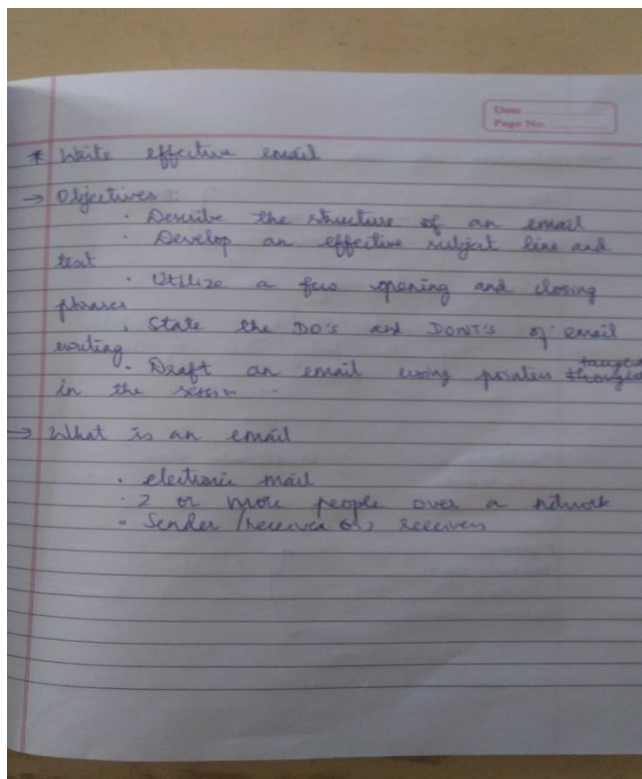 Date
Page No.
* Write effective email
→ Objectives :
· Describe the structure of an email
· Develop an effective subject line and
text
· Utilize a few opening and closing
phrases
· State the DO's and DONT'S of email
writing
· Draft an email using pointers
in the session .
→ What is an email
· electronic mail
· 2 or more people over a network
· Sender / receiver or receivers